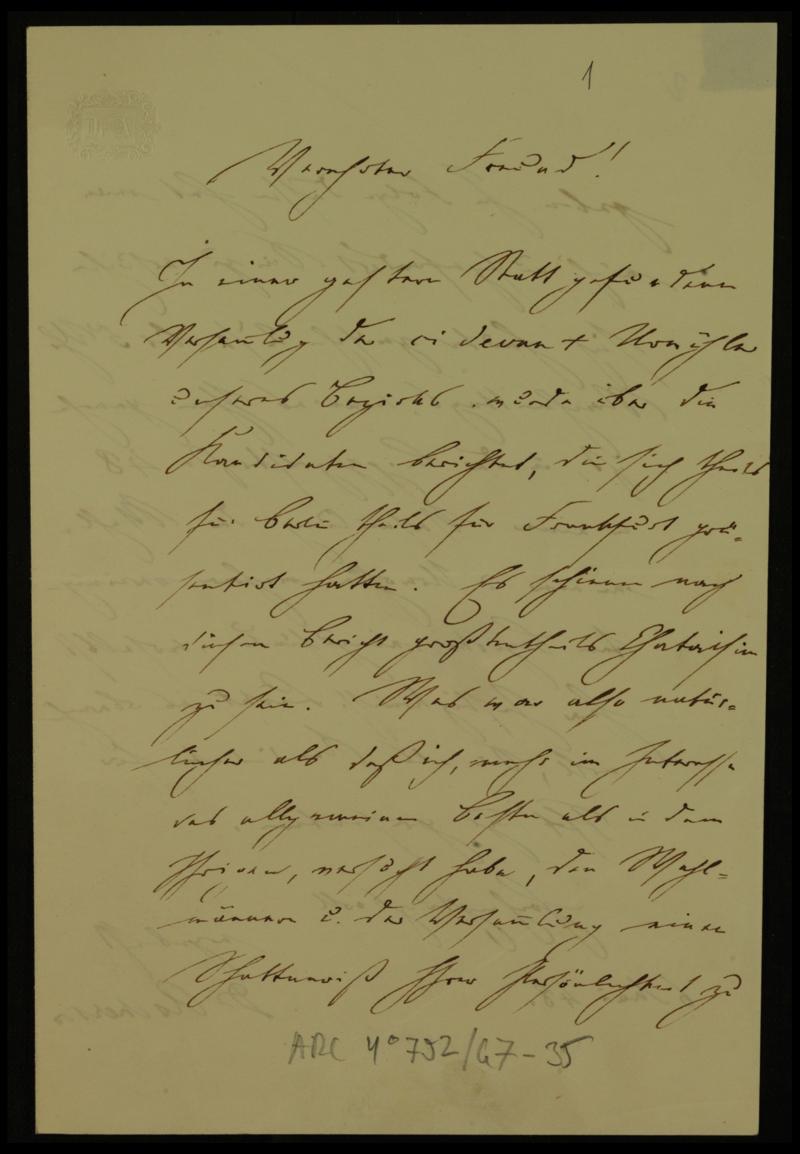 1
Verehrter Freund!
In einer gestern Statt gefundenen
Versamlung der ci devant Urwähler
unseres Bezirks wurde über die
Kandidaten berichtet, die sich theils
für Berlin theils für Frankfurt prä-
sentirt hatten. Es schienen nach
diesem Bericht großtentheils
zu sein. Was war also natür-
licher als daß ich, mehr im Interesse
des allgemeinen Besten als in dem
Ihrigen, versucht habe, den Wahl-
männern u. der Versam̅lung einen
Schattenriß Ihrer Persönlichkeit zu
ARC 4° 792/G7-35